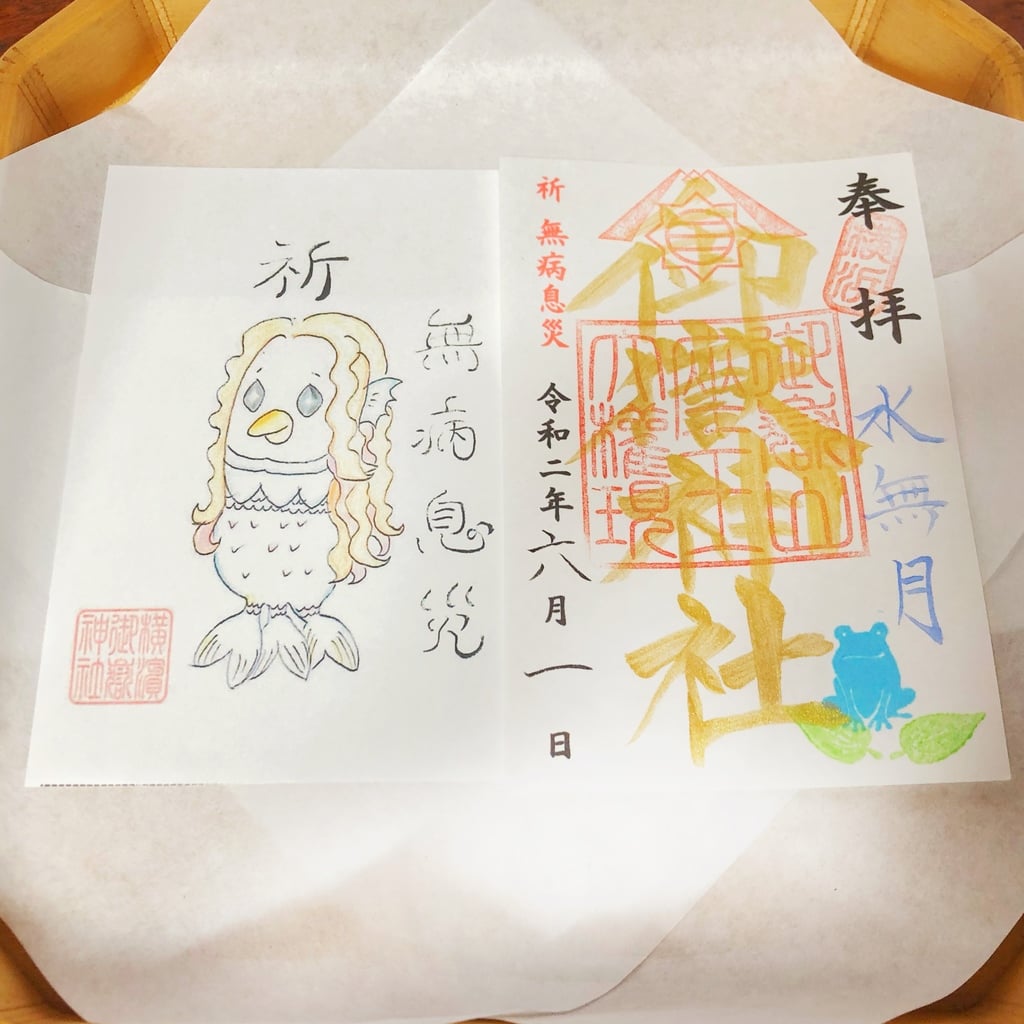 奉拝
横浜
水無月
御嶽神社
御嶽山
大権現
祈 無病息災
令和二年六月一日
祈
無病息災
横濵
御嶽
神社